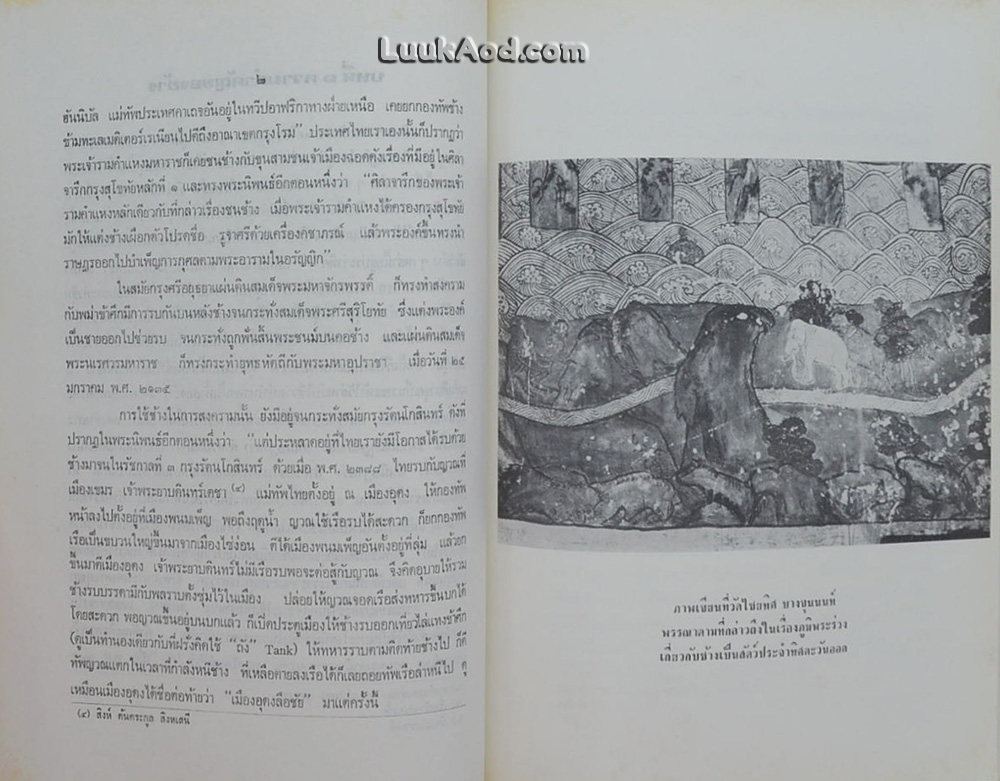 LuukAod.com
๒
ฮันนิบัล แม่ทัพประเทศคาเถจอันอยู่ในทวีปอาฟริกาทางฝ่ายเหนือ เคยยกกองทัพช้าง
ข้ามทะเลเมดิเตอร์เรเนียนไปตีถึงอาณาเขตกรุงโรม” ประเทศไทยเราเองนั้นก็ปรากฏว่า
พระเจ้ารามกำแหงมหาราชก็เคยชนช้างกับขุนสามชนเจ้าเมืองฉอดดังเรื่องที่มีอยู่ในศิลา
จารึกกรุงสุโขทัยหลักที่ ๑ และทรงพระนิพนธ์อีกตอนหนึ่งว่า “ศิลาจารึกของพระเจ้า
รามกำแหงหลักเดียวกับที่กล่าวเรื่องชนช้าง เมื่อพระเจ้ารามกำแหงได้ครองกรุงสุโขทัย
มักให้แต่งช้างเผือกตัวโปรดชื่อ รูจาศรีด้วยเครื่องคชาภรณ์ แล้วพระองค์ขึ้นทรงนำ
ราษฎรออกไปบำเพ็ญการกุศลตามพระอารามในอรัญญิก
ในสมัยกรุงศรีอยุธยาแผ่นดินสมเด็จพระมหาจักรพรรดิ์ ก็ทรงทำสงคราม
กับพม่าข้าศึกมีการรบกันบนหลังช้างจนกระทั่งสมเด็จพระศรีสุริโยทัย ซึ่งแต่งพระองค์
เป็นชายออกไปช่วยรบ จนกระทั่งถูกฟันสิ้นพระชนม์บนคอช้าง และแผ่นดินสมเด็จ
พระนเรศวรมหาราช ก็ทรงกระทำยุทธหัตถีกับพระมหาอุปราชา เมื่อวันที่ ๒๕
มกราคม พ.ศ. ๒๑๓๕
การใช้ช้างในการสงครามนั้น ยังมีอยู่จนกระทั่งสมัยกรุงรัตนโกสินทร์ ดังที่
ปรากฏในพระนิพนธ์อีกตอนหนึ่งว่า “แต่ประหลาดอยู่ที่ไทยเรายังมีโอกาสได้รบด้วย
ช้างมาจนในรัชกาลที่ ๓ กรุงรัตนโกสินทร์ ด้วยเมื่อ พ.ศ. ๒๓๘๘ ไทยรบกับญวนที่
เมืองเขมร เจ้าพระยาบดินทร์เดชา (๔) แม่ทัพไทยตั้งอยู่ ณ เมืองอุดง ให้กองทัพ
หน้าลงไปตั้งอยู่ที่เมืองพนมเพ็ญ พอถึงฤดูน้ำ ญวนใช้เรือรบได้สะดวก ก็ยกกองทัพ
เรือเป็นขบวนใหญ่ขึ้นมาจากเมืองไซ่ง่อน ตีได้เมืองพนมเพ็ญอันตั้งอยู่ที่ลุ่ม แล้วยก
ขึ้นมาตีเมืองอุดง เจ้าพระยาบดินทร์ไม่มีเรือรบพอจะต่อสู้กับญวน จึงคิดอุบายให้รวม
ช้างรบบรรดามีกับพลราบตั้งซุ่มไว้ในเมือง ปล่อยให้ญวนจอดเรือส่งทหารขึ้นบกได้
โดยสะดวก พอญวนขึ้นอยู่บนบกแล้ว ก็เปิดประตูเมืองให้ช้างรบออกเที่ยวไล่แทงข้าศึก
(ดูเป็นทำนองเดียวกับที่ฝรั่งคิดใช้ “ถัง” Tank) ให้ทหารราบตามติดท้ายช้างไป ก็ตี
ทัพญวนแตกในเวลาที่กำลังหนีช้าง ที่เหลือตายลงเรือได้ก็เลยถอยทัพเรือล่าหนีไป ดู
เหมือนเมืองอุดงได้ชื่อต่อท้ายว่า “เมืองอุดงลือชัย” มาแต่ครั้งนี้
(๔) สิงห์ ต้นตระกูล สิงหเสนี
ภาพเขียนที่วัดไชยทิศ บางขุนนนท์
พรรณาตามที่กล่าวถึงในเรื่องภูมิพระร่วง
เกี่ยวกับช้างเป็นสัตว์ประจำทิศตะวันออก